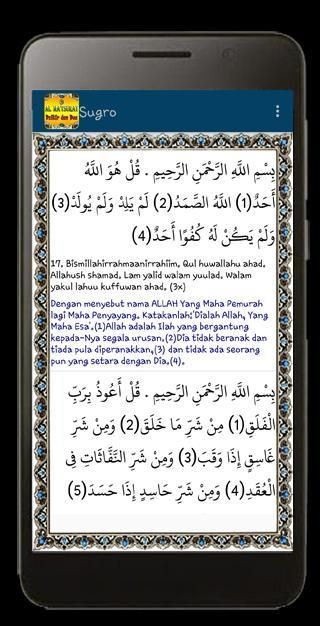 AL MATSURAT
Dzikir dan Doa
Sugro
بِسْمِ اللَّهِ الرَّحْمَنِ الرَّحِيمِ . قُلْ هُوَ اللَّهُ
أَحَدٌ(1) اللَّهُ الصَّمَدُ(2) لَمْ يَلِدْ وَلَمْ يُولَدْ(3)
وَلَمْ يَكُنْ لَهُ كُفُوًا أَحَدٌ(4)
17. Bismillahirrahmaanirrahiim. Qul huwallahu ahad.
Allahush shamad. Lam yalid walam yuulad. Walam
yakul lahuu kuffuwan ahad. (3x)
Dengan menyebut nama ALLAH Yang Maha Pemurah
lagi Maha Penyayang. Katakanlah:'Dialah Allah, Yang
Maha Esa'.(1)Allah adalah Ilah yang bergantung
kepada-Nya segala urusan.(2)Dia tidak beranak dan
tiada pula diperanakkan,(3) dan tidak ada seorang
pun yang setara dengan Dia.(4).
بِسْمِ اللَّهِ الرَّحْمَنِ الرَّحِيمِ . قُلْ أَعُوذُ بِرَبِّ
الْفَلَقِ(1) مِنْ شَرِّ مَا خَلَقَ(2) وَمِنْ شَرِّ
غَاسِقٍ إِذَا وَقَبَ(3) وَمِنْ شَرِّ النَّفَّاثَاتِ فِي
الْعُقَدِ(4) وَمِنْ شَرِّ حَاسِدٍ إِذَا حَسَدَ(5)